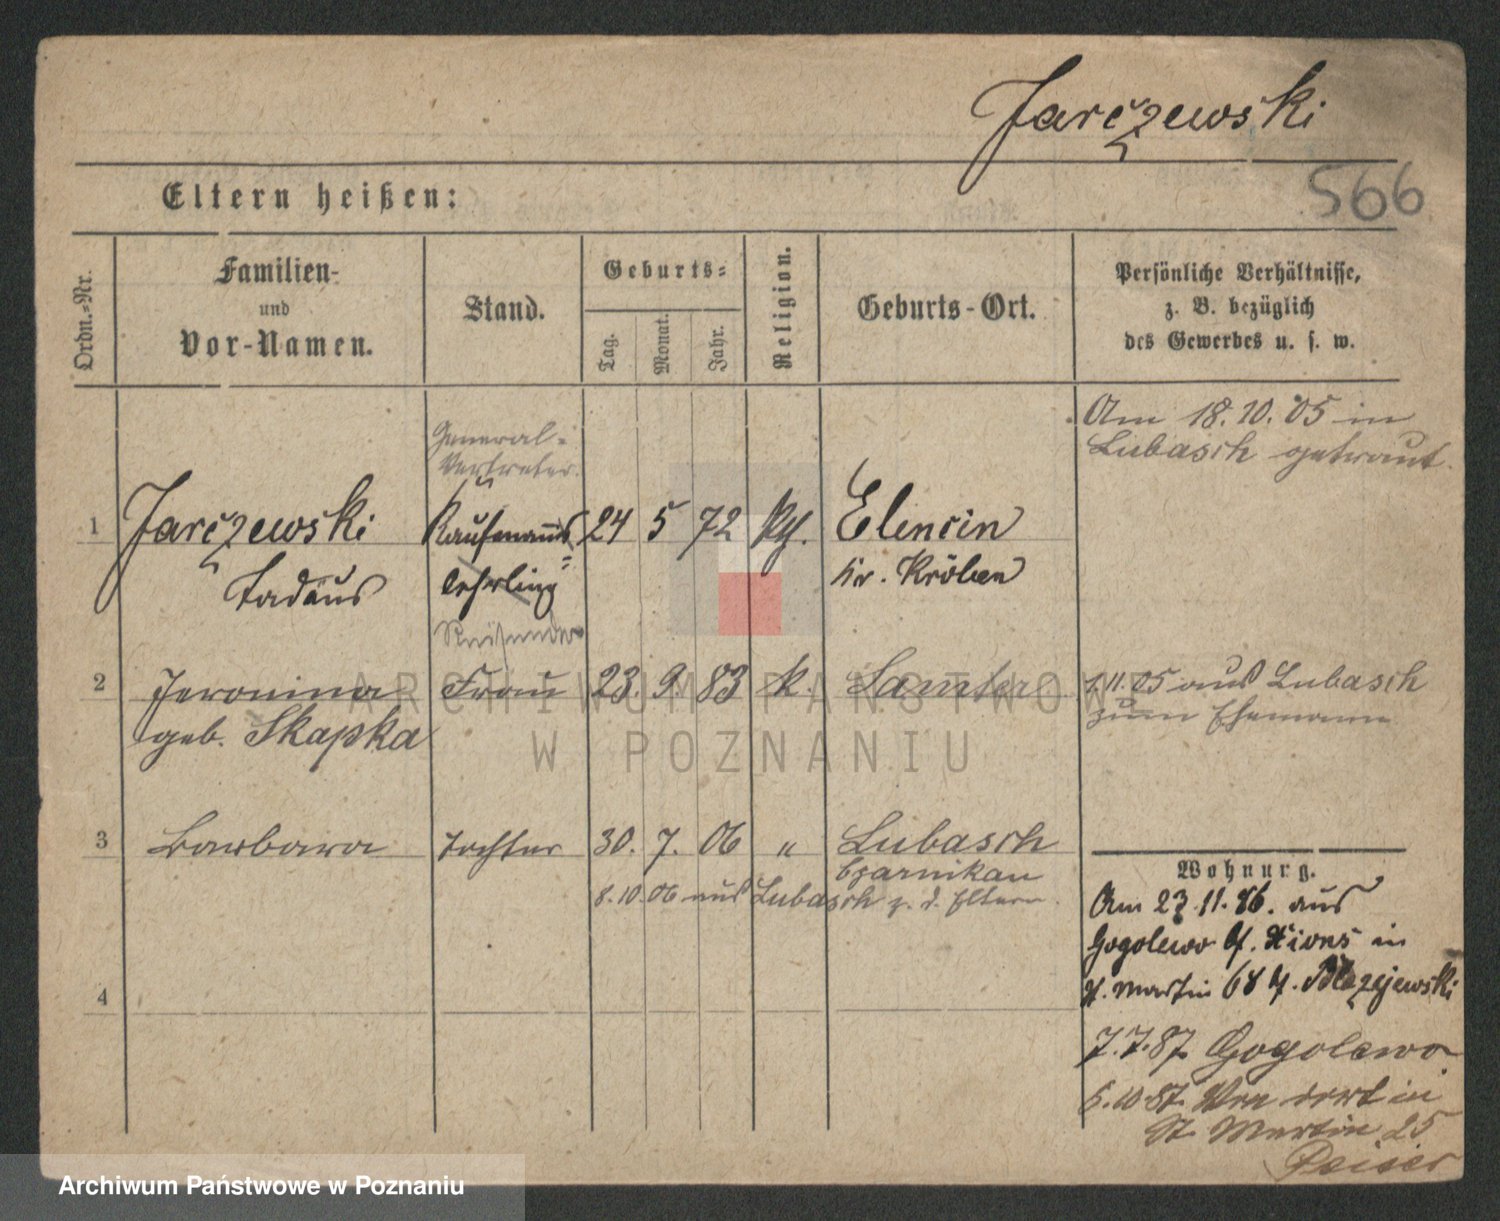 Jarczewski
566
Eltern heißen:
Ordn.-Nr.
Familien-
und
Vor-Namen.
Stand.
Geburts-
Tag.
Monat.
Jahr.
Religion.
Geburts-Ort.
Persönliche Verhältnisse,
z. B. bezüglich
des Gewerbes u. s. w.
Am 18.10.05 in
Lubasch getraut.
General-
Vertreter.
1 Jarczewski Kaufmanns 24 5 72 Elencin
Tadäus lehrling Kr. Kröben
Reisender
2 Jeronima Frau 23. 9. 83 k. Samter 7.11.05 aus Lubasch
geb. Skapka zum Ehemann
3 Barbara Tochter 30. 7. 06 " Lubasch
Czarnikau
8.10.06 aus Lubasch z. d. Eltern.
Wohnung.
Am 23.11.86. aus
Gogolewo in
St. Martin 68
4
7.7.87 Gogolewo
5.10.87. Von dort in
St. Martin 25
Peiser
ARCHIWUM PAŃSTWOWE
W POZNANIU
Archiwum Państwowe w Poznaniu